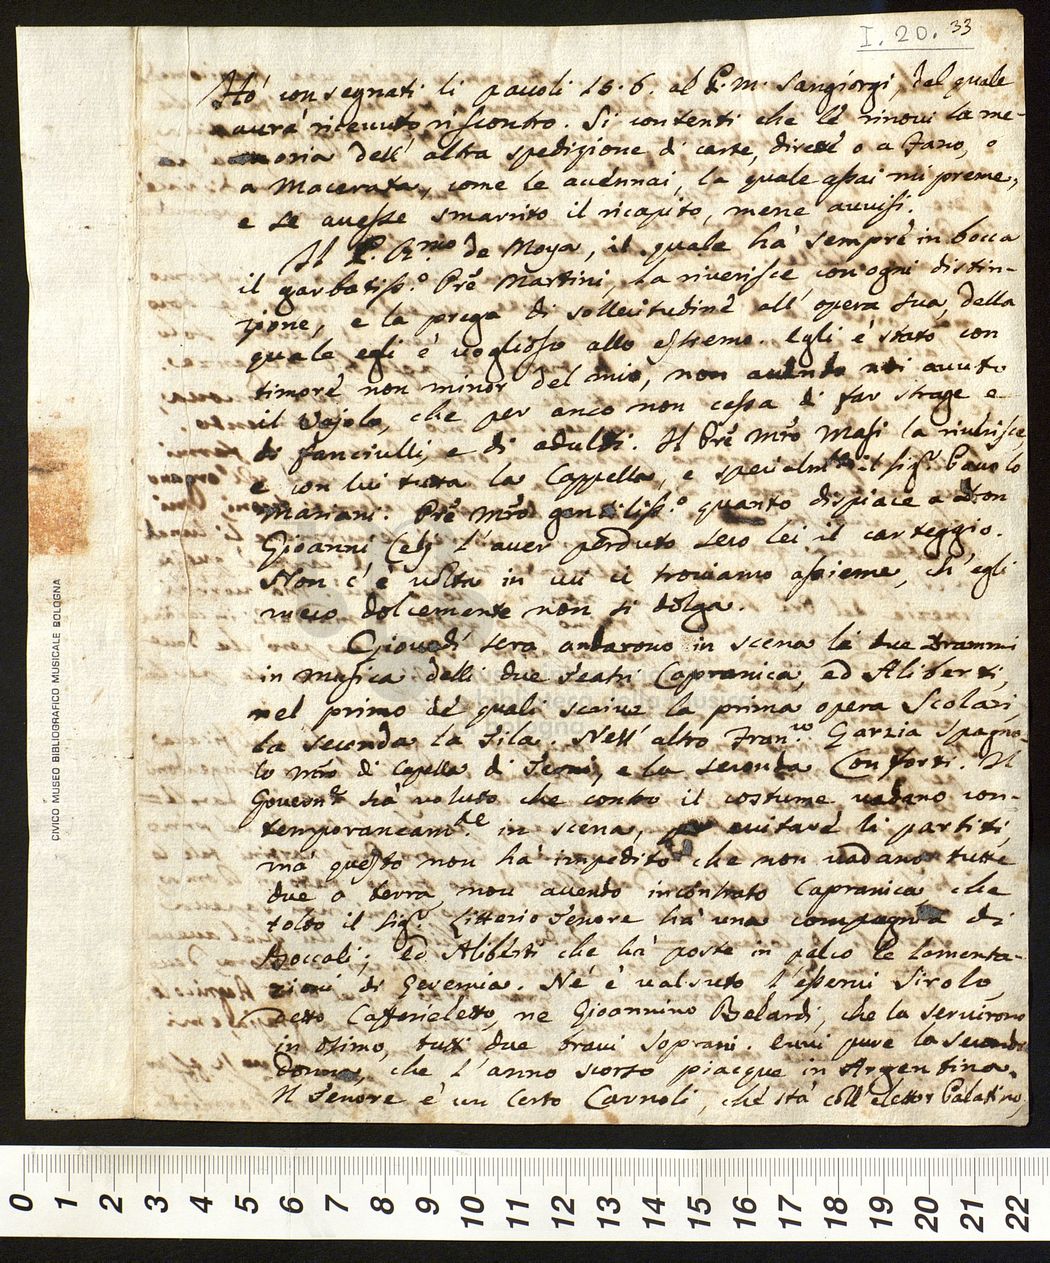 I. 20. 33
Hò consegnati li pauoli 15.6. al P. M. Sangiorgi, del quale
aurà riceuuto riscontro. Si contenti che le rinovi la me-
moria dell' altra spedizione di carte, dirette o a Fano, o
a Macerata, come le accennai, la quale assai mi preme,
e se auesse smarrito il ricapito, mene auuisi.
Il P. R.mo de Moya, il quale hà sempre in bocca
il garbatiss.o Prẽ Martini, La riverisce con ogni distin-
zione, e la prega di sollecitudine all' opera sua, della
quale egli è voglioso allo estremo. Egli è stato con
timore non minor del mio, non auendo noi auuto
il Vajolo, che per anco non cessa di far strage e
di fanciulli, e di adulti. Il Prẽ Mrõ Masi la riverisce
e con lui tutta la Cappella, e specialm.te il Sig.r Pauolo
Mariani. Prẽ Mrõ gentiliss.o quanto dispiace a Don
Gioanni Celj l'auer perduto seco lei il carteggio.
Non c'è volta in cui ci trouiamo assieme, ch'egli
meco dolcemente non si dolga.
Giouedì sera andarono in scena li due Drammi
in Musica delli due Teatri Capranica, ed Aliberti,
nel primo de' quali scrive la prima opera Scolari,
la seconda la Sila. Nell' altro Fran.co Garzia Spagno-
lo Mrõ di Capella di Terni, e la seconda Conforti. Il
Govern.e hà voluto che contro il costume vadano con-
temporaneam.te in scena, per euitare li partiti,
mà questo non hà impedito che non vadano tutte
due a terra, non auendo incontrato Capranica che
tolto il Sig.r Litterio Tenore hà una compagnia di
Boccali; ed Aliberti che hà poste in palco le lamenta-
zioni di Geremia. Nè è valsuto l'esserui Sirolo,
detto Caffarieletto, ne Gioannino Belardi, che la seruirono
in Osimo, tutti due braui soprani. Euui pure la seconda
Donna, che l'anno scorso piacque in Argentina.
Il Tenore è un Certo Carnoli, che stà coll'elettor Palatino,
CIVICO MUSEO BIBLIOGRAFICO MUSICALE BOLOGNA
0 1 2 3 4 5 6 7 8 9 10 11 12 13 14 15 16 17 18 19 20 21 22